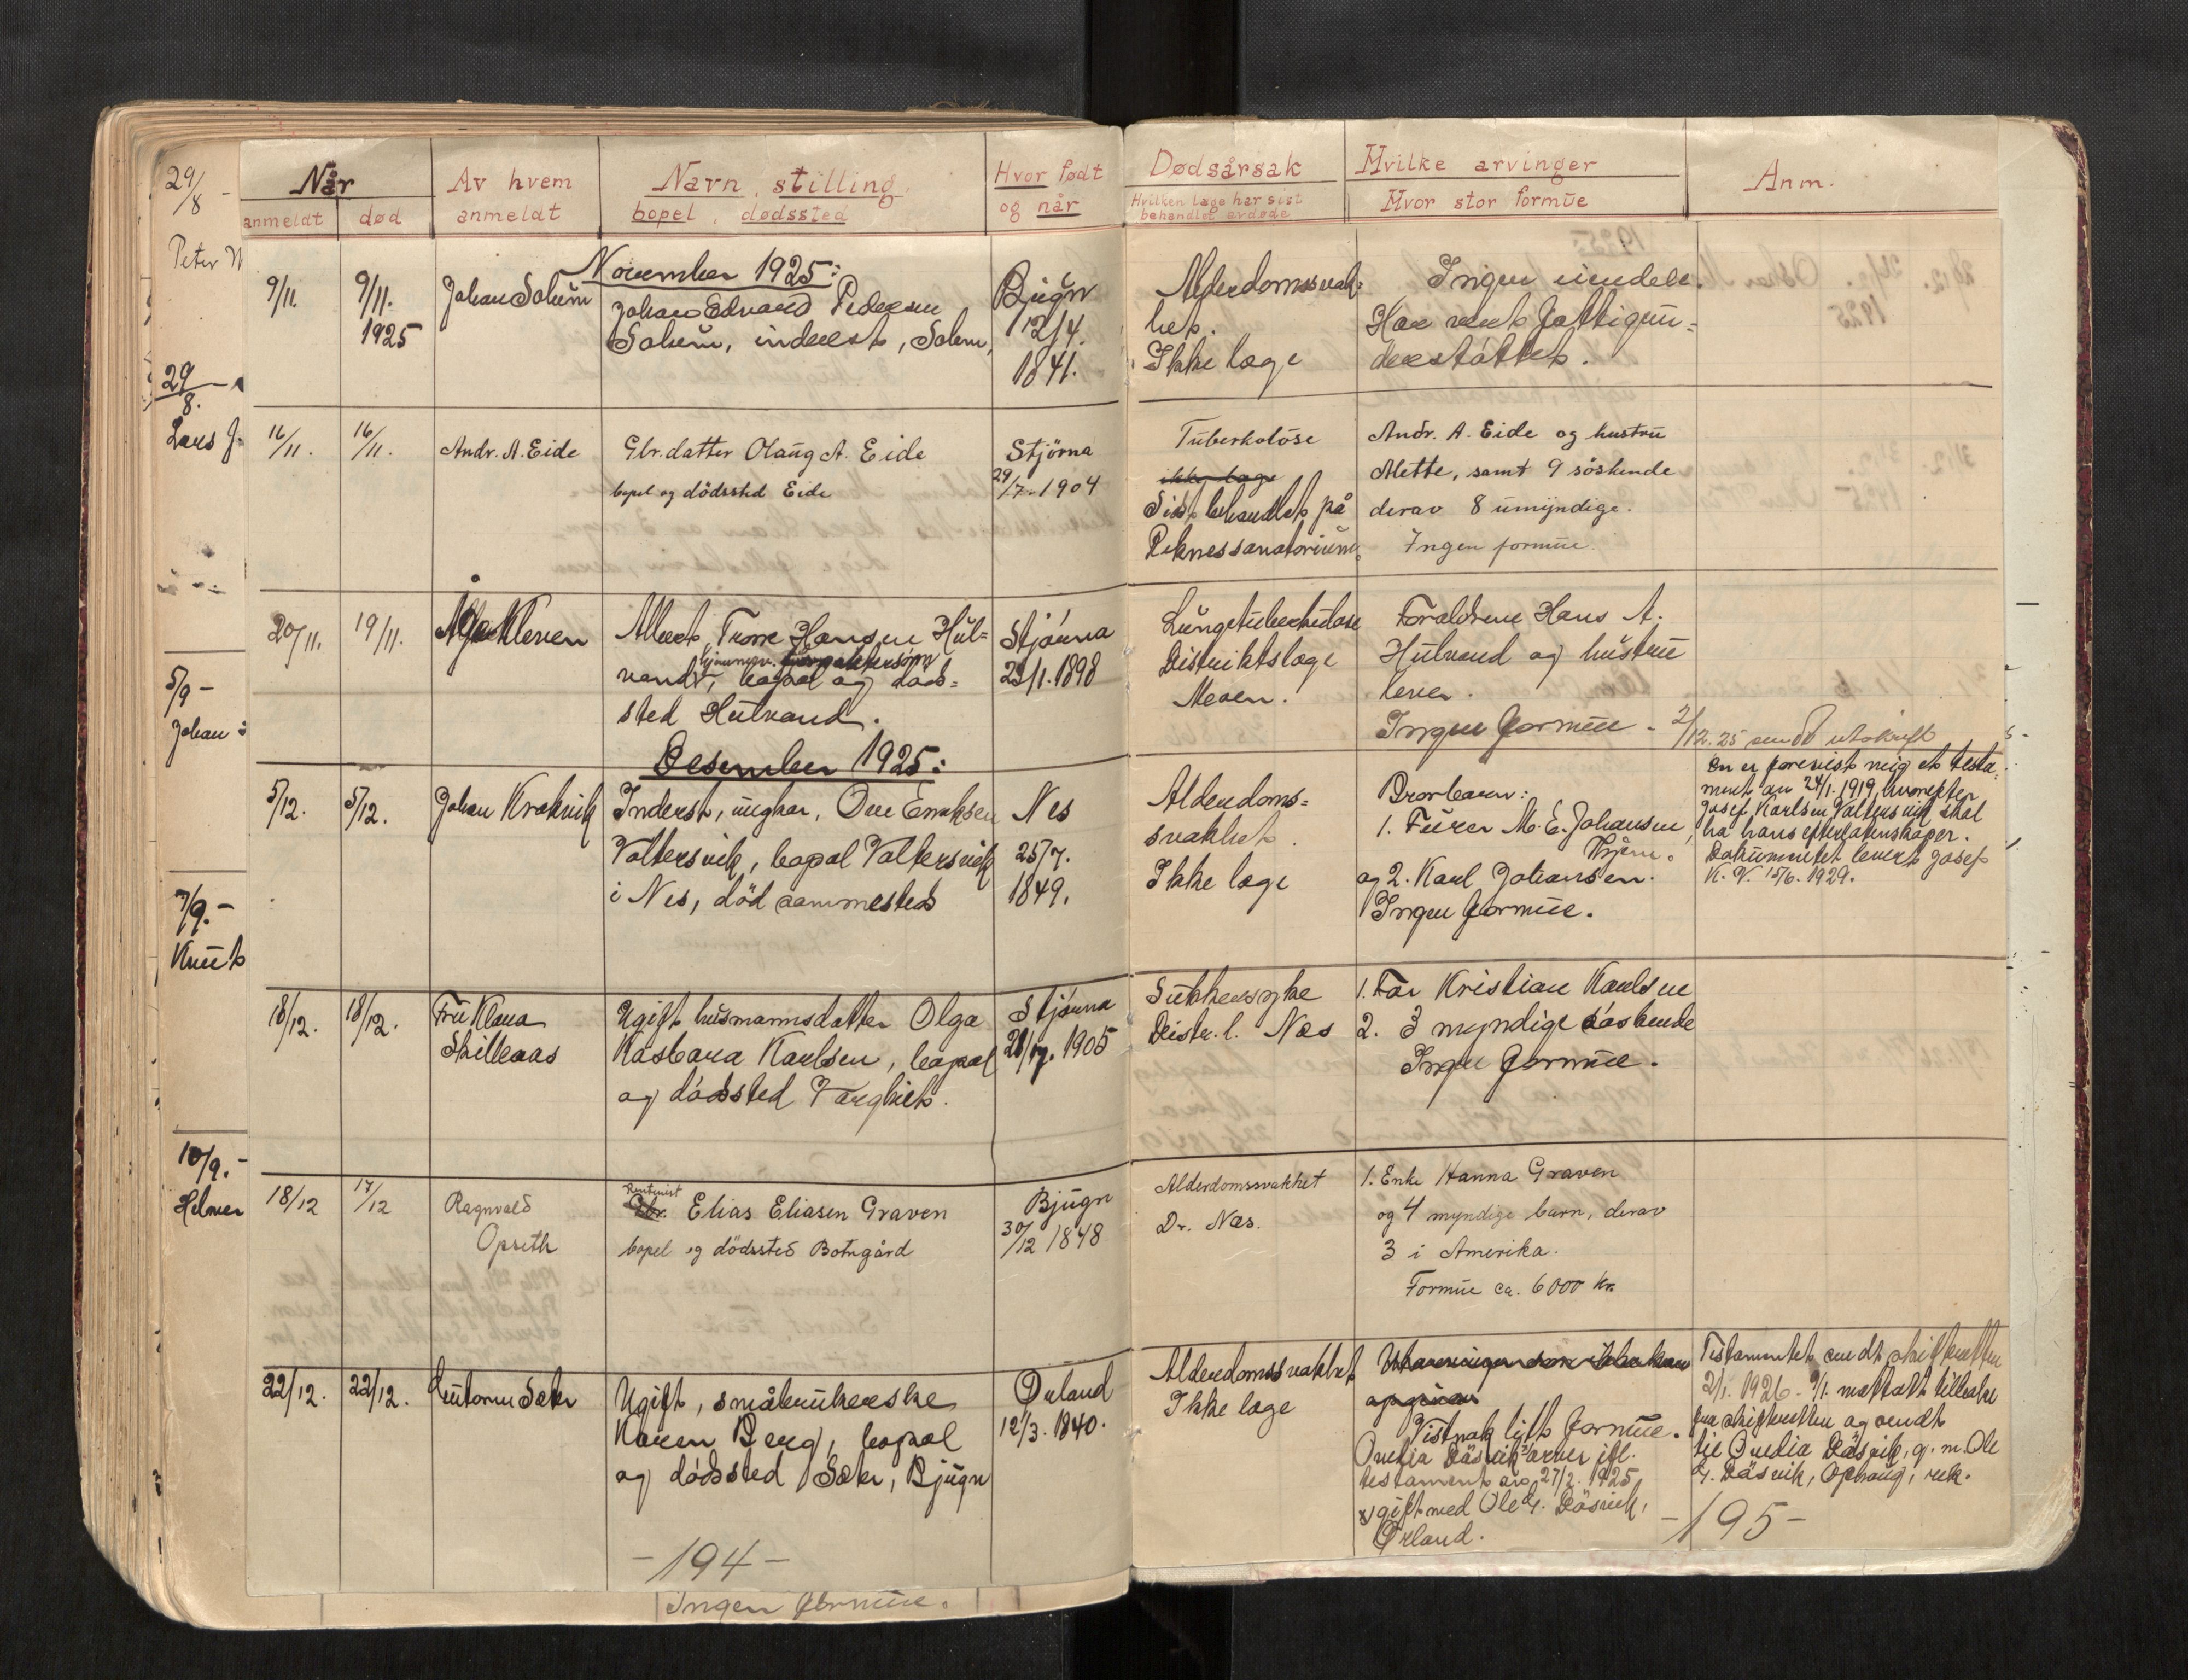 29/8 -
Peter
29/8. -
Lars J
5/9 -
Johan
7/9. -
Knut
10/9. -
Helmer
Når
anmeldt død
Av hvem
anmeldt
Navn, stilling,
bopel, dødssted
Hvor født
og når
Dødsårsak
Hvilken læge har sist
behandlet avdøde
Hvilke arvinger
Hvor stor formue
Anm.
November 1925:
9/11 9/11. 1925
Johan Solum
Johan Edvard Pedersen
Solum, inderst, Solem,
Bjugn
12/4.
1841.
Alderdomssvak=
het.
Ikke læge
Ingen eiendele.
Har vært fattigun=
derstøttet.
16/11. 16/11.
Andr. A. Eide
Gbr. datter Olaug A. Eide
bopel og dödssted Eide
Stjörna
29/7. 1904
Tuberkolöse
ikke læge
Sist behandlet på
Reknessanatorium.
Andr. A. Eide og hustru
Mette, samt 9 söskende
derav 8 umyndige.
Ingen formue.
20/11. 19/11.
Kleven
Albert Hansen Hul=
vand, bopæl og död=
sted Hulvand.
Stjörna
23/1. 1898
Lungetuberkulose
Distriktslæge
Meven.
Forældrene Hans A.
Hulvand og hustru
lever.
Ingen formue -
2/12. 25 sendt utskrift
Desember 1925:
5/12. 5/12.
Johan Krakvik
Inderst, ungkar, Ole Eriksen
Valtersvik, bopæl Valtersvik
i Nes, död sammesteds
Nes
25/7.
1849.
Alderdoms=
svakhet.
Ikke læge
Brorbarn:
1. Furer M. E. Johansen,
Trhjem.
og 2. Karl Johansen.
Ingen formue.
En er forevist mig et testa=
ment av 24/1. 1919, hvorefter
Josef Karlsen Valtersvik skal
ha hans efterlatenskaper.
Dokumentet levert Josef
K. V. 15/6. 1929.
18/12. 18/12.
Fru Klara
Skilleaas
Ugift husmannsdatter Olga
Kasbara Karlsen, bopæl
og dödssted
Stjörna
1905
Sukkersyke
Distr. l. Næs
1. Far Kristian Karlsen
2. 3 myndige söskende
Ingen formue.
18/12 17/12
Ragnvald
Opseth
Rentenist
Gbr. Elias Eliasen Graven
bopel og dödssted Botngård
Bjugn
30/12 1848
Alderdomssvakhet
Dr. Næs.
1. Enke Hanna Graven
og 4 myndige barn, derav
3 i Amerika.
Formue ca. 6000 kr.
22/12. 22/12.
Sæter
Ugift, småbrukerske
Karen Berg, bopæl
og dödssted Sæter, Bjugn
Ørland
12/3. 1840.
Alderdomssvakhet
Ikke læge
Vistnok litt formue.
Ovedia Däsvik x) arver ifl.
testament av 27/2. 1925,
x) gift med Ole Däsvik,
Ørland.
Testamentet sendt skifteretten
2/1. 1926 - 9/1. mottatt tilbake
fra skifteretten og sendt
til Ovedia Däsvik, g. m. Ole
Däsvik, Ophaug, rek.
- 194 -
- 195 -
Ingen formue.